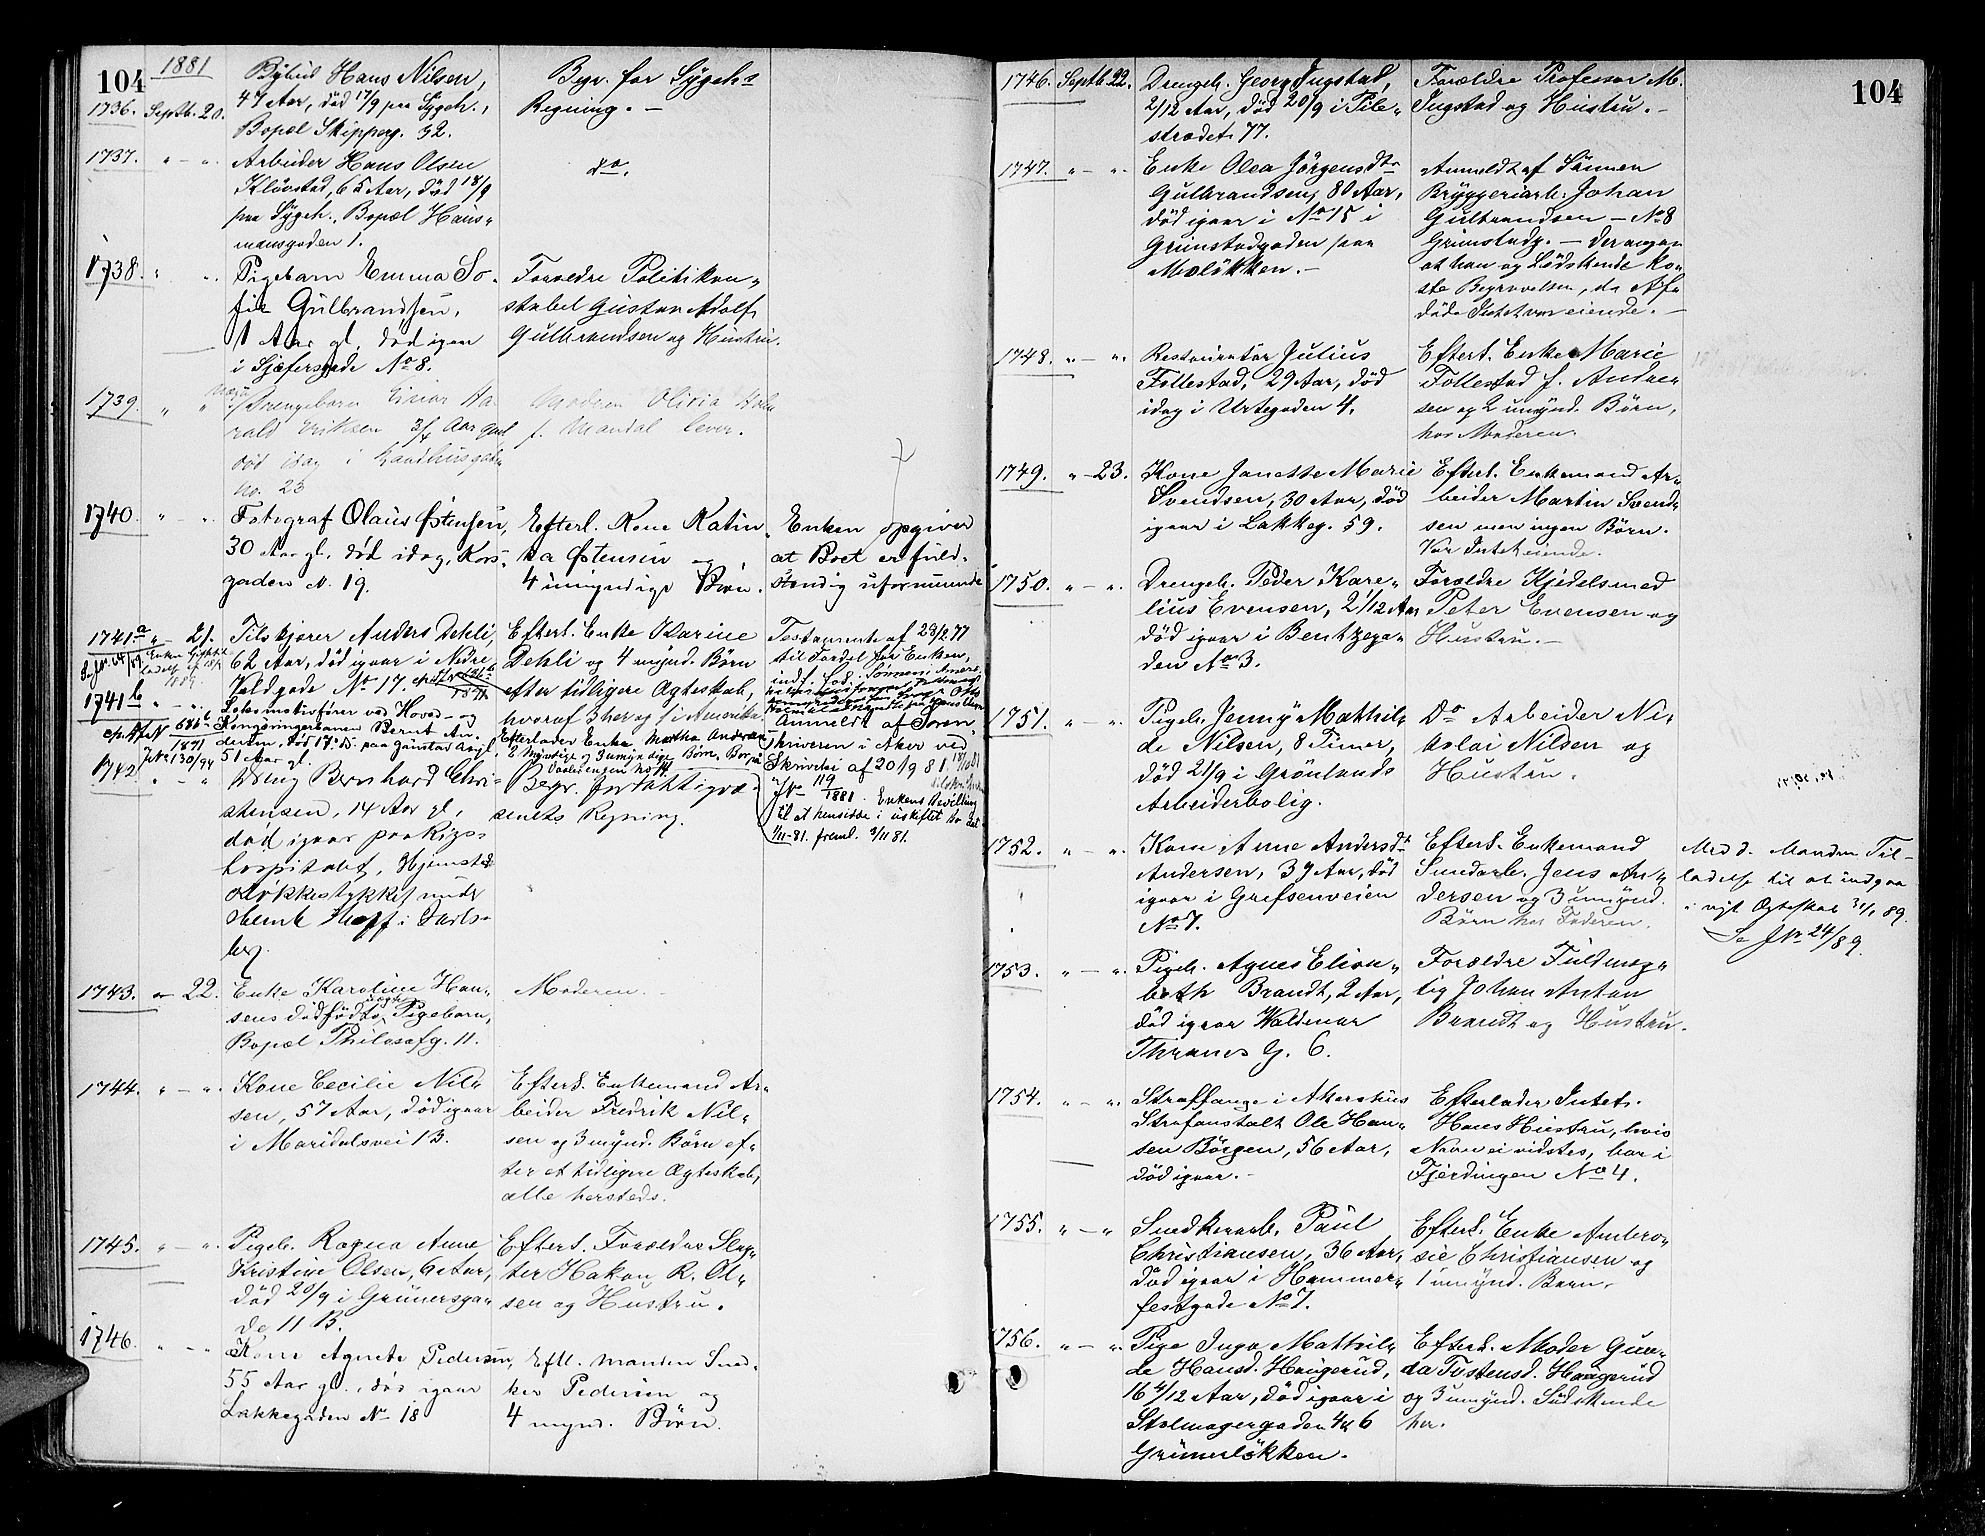 104
1881
1736. Septb. 20. Bybud Hans Nilsen,
47 Aar, död 17/9 paa Sygeh.,
Bopæl Skipperg. 32.
Begr. for Sygehs
Regning. —
1737. " - ". Arbeider Hans Olsen
Klövstad, 65 Aar, död 18/9
paa Sygeh., Bopæl Haus-
mansgaden 1.
do.
1738. " ". Pigebarn Emma So-
fie Gulbrandsen,
1 Aar gl. död igaar
i Sjøfersgade No 8.
Forældre Politikon-
stabel Gustav Adolf
Gulbrandsen og Hustru.
1739. " " Drengebarn Einar Ha-
rald Eriksen 3/4 Aar gaml
död idag i Raadhusgaden
no. 23
Moderen Olivia
f. Mandal lever.
1740. " ". Fotograf Olaus Østensen,
30 Aar gl. død idag, Kors-
gaden N. 19.
Efterl. Kone Katin-
ka Østensen og
4 umyndige Børn.
Enken opgiver
at Boet er fuld-
stændig uformuende
1741a " - 21. Tilskjærer Anders Dehli,
62 Aar, död igaar i Nedre
Voldgade No 17.
Efterl. Enke Karine
Dehli og 4 mynd. Børn
efter tidligere Ægteskab,
hvoraf 3 her og 1 i Amerika.
Testamente af 28/2 77
til Fordel for Enken,
1741b " - ". Lokomotivfører ved Hoved- og
Kongsvingerbanen Bernt An-
dersen, død 17/9 paa Gaustad Asyl,
51 Aar gl.
Efterlader Enke Martha Andersen,
2 Myndige og 3 umyndige Børn. Bopæl
Vaalerengen No
Anmeldt af Soren-
skriveren i Aker ved
Skrivelse af 20/9 81.
JNo 119/1881. Enkens Bevilling
til at hensidde i uskiftet Bo dat
1/11-81. freml. 3/11 81.
1742 " - " Dreng Bernhard Chri-
stensen, 14 Aar gl,
død igaar paa Rigs-
hospitalet, Hjemsted
Løkkestykket under
Hoff i Jarls-
berg.
Begr. for Fattigvæ-
senets Regning.
1743. " - 22. Enke Karoline Han-
sens dödfödte uægte Pigebarn,
Bopæl Thilosofg. 11.
Moderen. —
1744. " - ". Kone Cecilie Nil-
sen, 57 Aar, död igaar
i Maridalsvei 13.
Efterl. Enkemand Ar-
beider Fredrik Nil-
sen og 3 mynd. Børn ef-
ter et tidligere Ægteskab,
alle hersteds.
1745. " - ". Pigeb. Ragna Anne
Kristine Olsen, 6 Aar,
död 20/9 i Grünersga-
de 11 B.
Efterl. Forældre Slag-
ter Hakon R. Ol-
sen og Hustru.
1746. " - " Kone Agnete Pedersen,
55 Aar gl., død igaar
Lakkegaden No 18
Eftl. Manden Sned-
ker Pedersen og
4 mynd. Børn.
104
1746. Septb 22. Drengeb. Georg Ingstad,
2/12 Aar, död 20/9 i Pile-
strædet 77.
Forældre Professor M.
Ingstad og Hustru. —
1747. " - ". Enke Olea Jörgensdtr
Gulbrandsen, 80 Aar,
död igaar i No 15 i
Grimstadgaden paa
Meslökken. —
Anmeldt af Sönnen
Bryggeriarb. Johan
Gulbrandsen — No 8
Grimstadg. — der angav
at han og Södskende ko-
ste Begravelsen, da Afd
döde Intet var eiende. —
1748. " - ". Restauratör Julius
Follestad, 29 Aar, död
idag i Urtegaden 4.
Efterl. Enke Marie
Follestad f. Andre-
sen og 2 umynd. Börn,
hos Moderen.
1749. " - 23. Kone Janette Marie
Svendsen, 30 Aar, död
igaar i Lakkeg. 59.
Efterl. Enkemand Ar-
beider Martin Svend-
sen men ingen Börn.
Var Intet eiende.
1750. " - ". Drengeb. Peder Kare-
lius Evensen, 2 1/12 Aar
död igaar i Bentzega-
den No 3.
Forældre Kjedelsmed
Peter Evensen og
Hustru. —
1751. " - ". Pigeb. Jenny Mathil-
de Nilsen, 8 Timer,
död 21/9 i Grönlands
Arbeiderbolig.
Do Arbeider Ni-
kolai Nilsen og
Hustru.
1752. " - ". Kone Anne Andersdt
Andersen, 39 Aar, död
igaar i Grefsenveien
No 7.
Efterl. Enkemand
Jens An-
dersen og 3 umynd.
Börn hos Faderen.
Medd. Manden Til-
ladelse til at indgaa
i nyt Ægteskab 31/1 89.
Se JNo 24/89.
1753. " - ". Pigeb. Agnes Elisa-
beth Brandt, 2 Aar,
död igaar Waldemar
Thranes G. 6.
Forældre Fuldmæg-
tig Johan Anton
Brandt og Hustru.
1754. " - ". Straffange i Akershus
Strafanstalt Ole Han-
sen Börgen, 56 Aar,
död igaar. —
Efterlader Intet.
Hans Hustru, hvis
Navn ei vidstes, bor i
Fjerdingen No 4.
1755. " - " Snedkerarb. Paul
Christiansen, 36 Aar,
död igaar i Hammer-
festgade No 7.
Efterl. Enke Ambro-
sie Christiansen og
1 umynd. Barn.
1756. " - ". Pige Inga Mathil-
de Hansd. Haugerud,
16 4/12 Aar, död igaar i
Stolmagergaden 4 & 6
Grünerlökken.
Efterl. Moder Gun-
da Tostensd. Haugerud
og 3 umynd. Södskende
her.